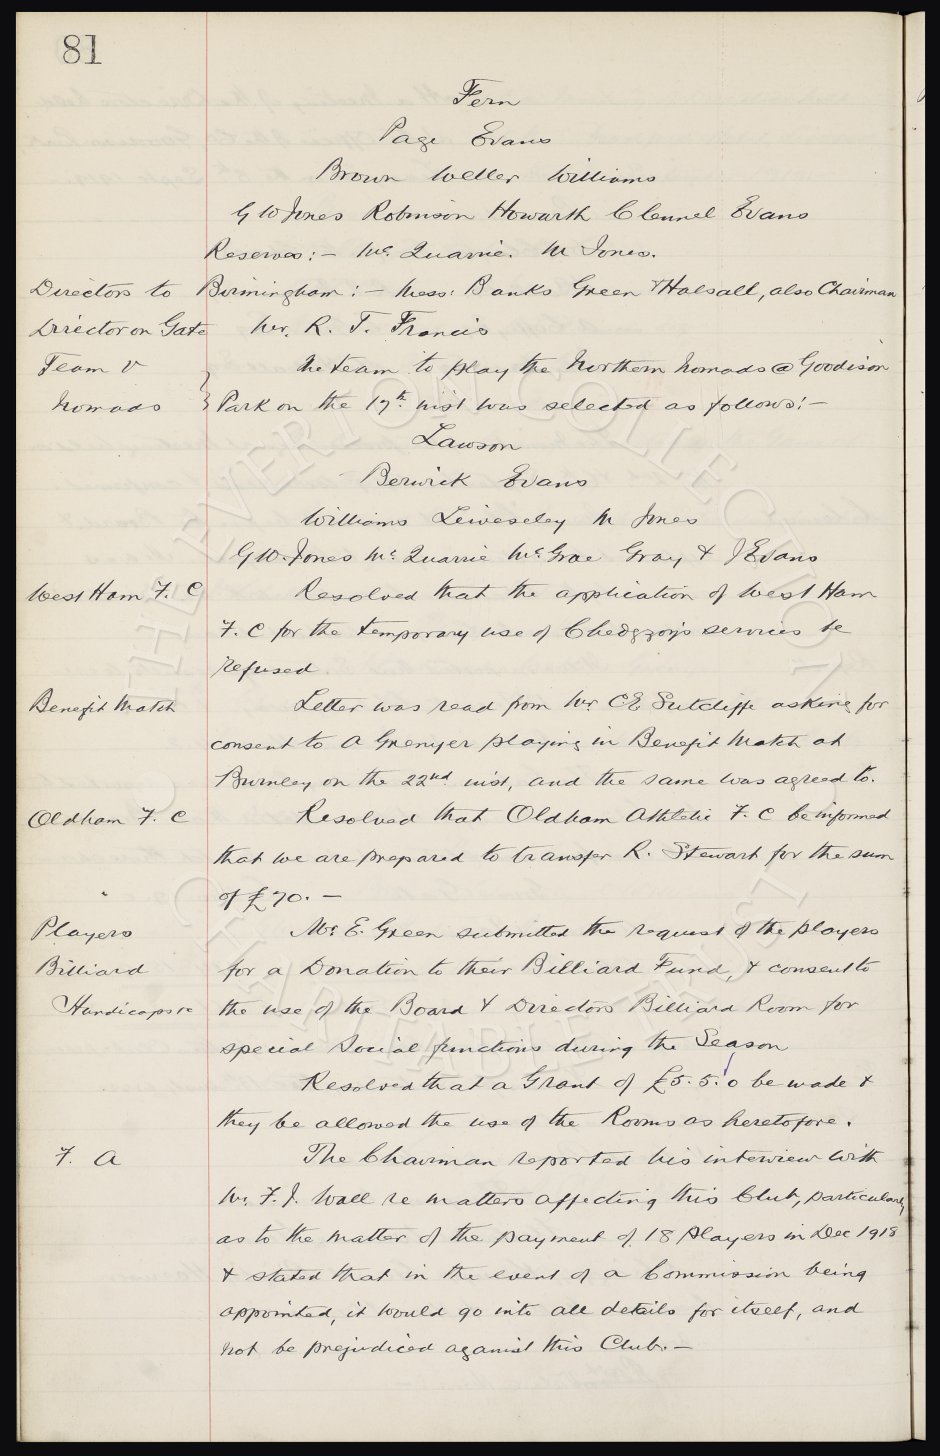 81
Fern
Page Evans
Brown Weller Williams
G W Jones Robinson Howarth Clennel Evans
Reserves :- Mc Quarrie. M Jones.
Directors to Birmingham :- Mess: Banks Green & Halsall, also Chairman
Director on Gate Mr. R. T. Francis
Team v The team to play the Northern Nomads @ Goodison
Nomads } Park on the 17th inst was selected as follows :-
Lawson
Berwick Evans
Williams Leiveseley M Jones
G W. Jones Mc Quarrie McGrae Gray & J Evans
West Ham F. C Resolved that the application of West Ham
F. C for the temporary use of Chedgzoy's services be
refused.
Benefit Match Letter was read from Mr C E Sutcliffe asking for
consent to A Grenyer playing in Benefit Match at
Burnley on the 22nd inst, and the same was agreed to.
Oldham F. C Resolved that Oldham Athletic F. C be informed
that we are prepared to transfer R. Stewart for the sum
of £70. —
Players Mr E. Green submitted the request of the players
Billiard for a Donation to their Billiard Fund, & consent to
Handicaps re the use of the Board & Directors Billiard Room for
special Social functions during the Season
Resolved that a Grant of £5. 5. 0 be made &
they be allowed the use of the Rooms as heretofore.
F. A The Chairman reported his interview with
Mr. F. J. Wall re matters affecting this Club, particularly
as to the matter of the payment of 18 players in Dec 1918
& stated that in the event of a Commission being
appointed, it would go into all details for itself, and
not be prejudiced against this Club. —
THE EVERTON COLLECTION
CHARITABLE TRUST